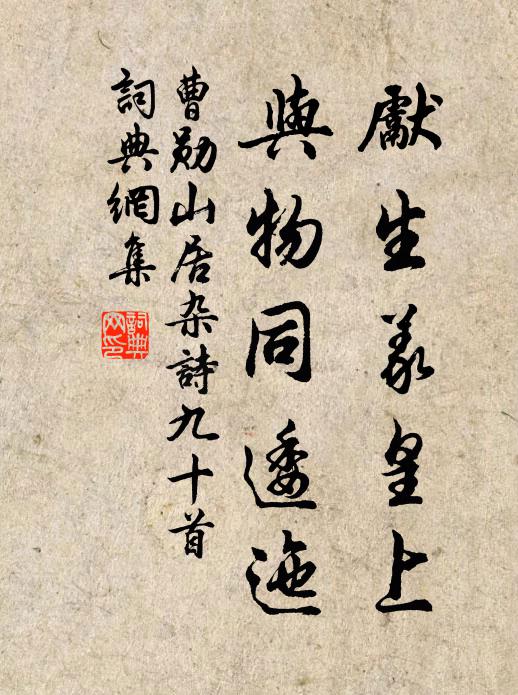 獻生羲皇上
與物同逶迤
曹勛山居杂詩九十首
詞典網集
詞典
网印